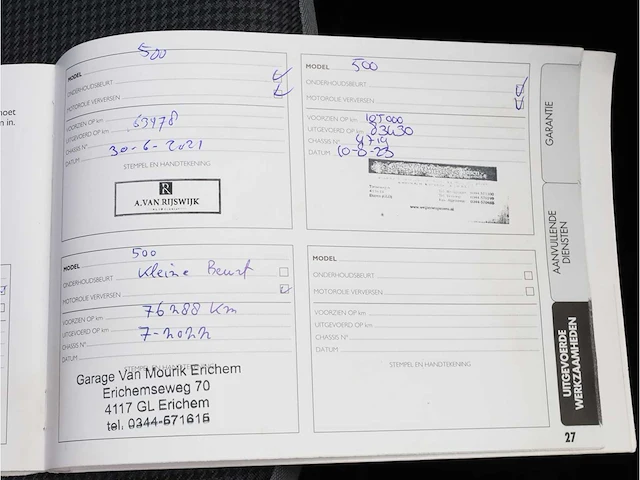 noet
n in.
500
MODEL
ONDERHOUDSBEURT
MOTOROLIE VERVERSEN
VOORZIEN OP km 63978
UITGEVOERD OP km
CHASSIS N° 30-6-2021
DATUM
STEMPEL EN HANDTEKENING
R
A.VAN RIJSWIJK
MODEL 500
ONDERHOUDSBEURT
MOTOROLIE VERVERSEN
VOORZIEN OP km 105000
UITGEVOERD OP km 83430
CHASSIS N°
DATUM
500
MODEL
Kleine Beurt
ONDERHOUDSBEURT
MOTOROLIE VERVERSEN
VOORZIEN OP km 76288 Km
UITGEVOERD OP km
CHASSIS N° 7-2022
DATUM
STEMPEL EN HANDTEKENING
Garage Van Mourik Erichem
Erichemseweg 70
4117 GL Erichem
tel. 0344-571615
MODEL
ONDERHOUDSBEURT
MOTOROLIE VERVERSEN
VOORZIEN OP km
UITGEVOERD OP km
CHASSIS N°
DATUM
STEMPEL EN HANDTEKENING
GARANTIE
AANVULLENDE
DIENSTEN
UITGEVOERDE
WERKZAAMHEDEN
27